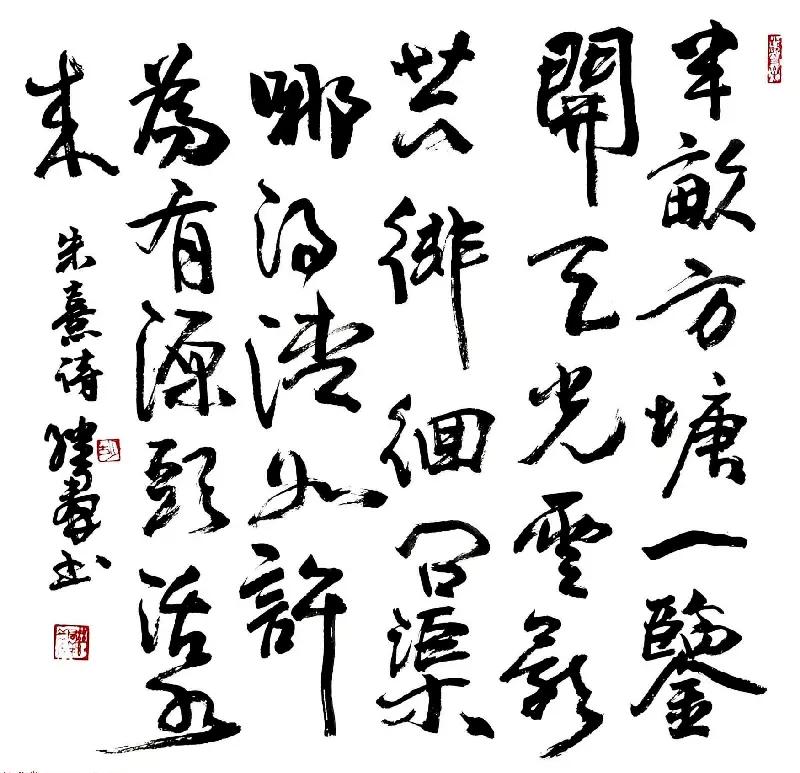 半畝方塘一鑒
開天光雲影
共徘徊問渠
哪得清如許
為有源頭活水
来
朱熹诗 书